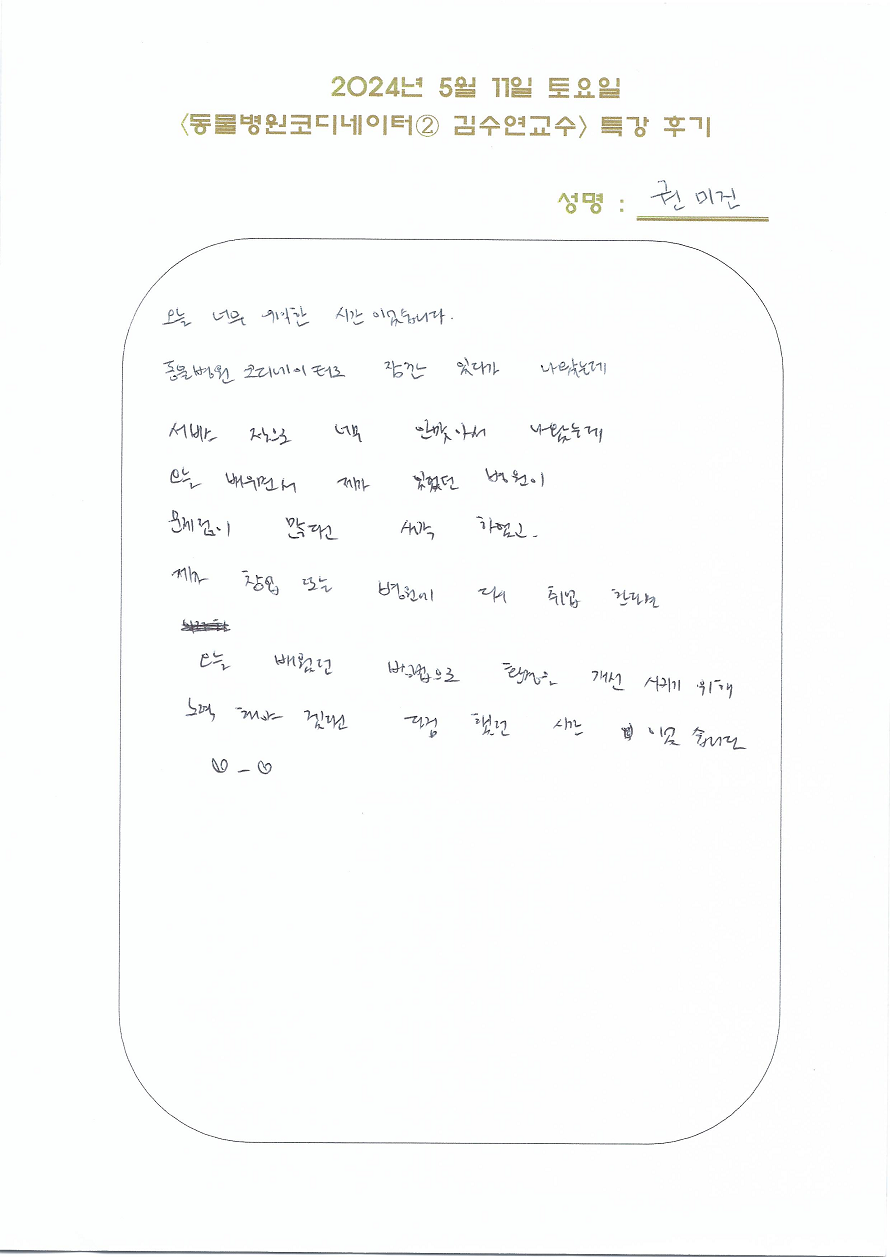 2024년 5월 11일 토요일
<동물병원코디네이터② 김수연교수> 특강 후기
성명 : 권미진
오늘 너무 유익한 시간 이였습니다.
동물병원 코디네이터로 잠깐 있다가 나왔는데
서비스 적으로 너무 안맞아서 나왔는데
오늘 배우면서 제가 있었던 병원이
문제점이 많다고 생각 하였고.
제가 창업 또는 병원에 다시 취업 한다면
오늘 배웠던 방법으로 환경을 개선 시키기 위해
노력 해야 겠다고 다짐 했던 시간 이였 습니다